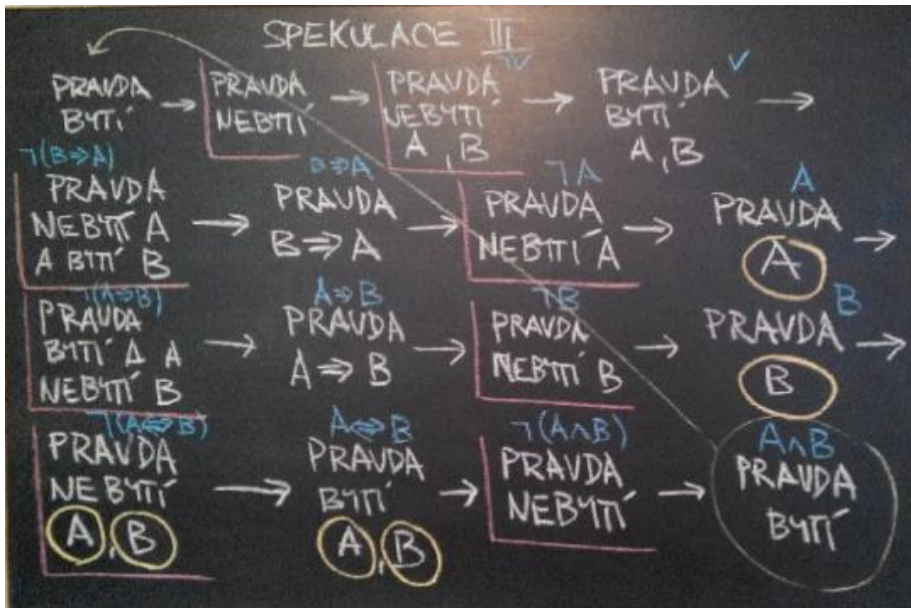 SPEKULACE III
PRAVDA
BYTÍ
→
PRAVDA
NEBYTÍ
→
¬∨
PRAVDA
NEBYTÍ
A, B
→
∨
PRAVDA
BYTÍ
A, B
→
¬(B⇒A)
PRAVDA
NEBYTÍ A
A BYTÍ B
→
B⇒A
PRAVDA
B⇒A
→
¬A
PRAVDA
NEBYTÍ A
→
A
PRAVDA
A
→
¬(A⇒B)
PRAVDA
BYTÍ A A
NEBYTÍ B
→
A⇒B
PRAVDA
A⇒B
→
¬B
PRAVDA
NEBYTÍ B
→
B
PRAVDA
B
→
¬(A⇔B)
PRAVDA
NEBYTÍ
A, B
→
A⇔B
PRAVDA
BYTÍ
A, B
→
¬(A∧B)
PRAVDA
NEBYTÍ
→
A∧B
PRAVDA
BYTÍ